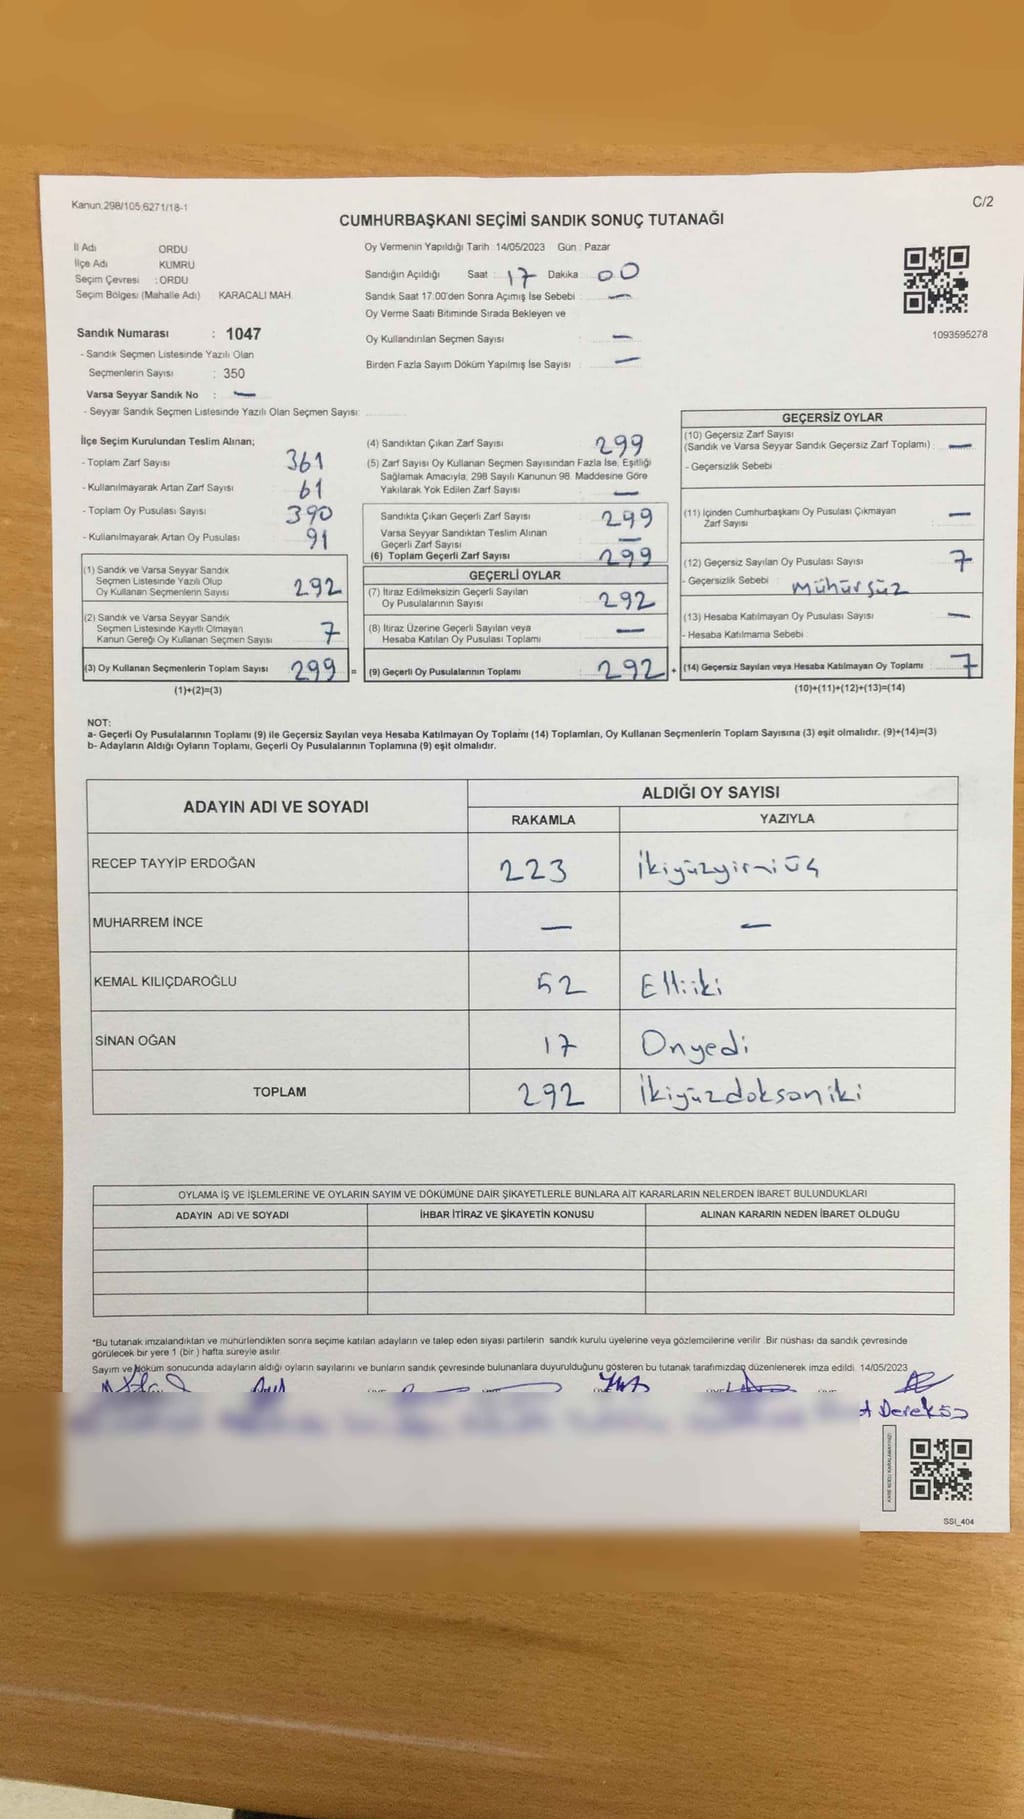 Kanun.298/105,6271/18-1
C/2
CUMHURBAŞKANI SEÇİMİ SANDIK SONUÇ TUTANAĞI
İl Adı ORDU
İlçe Adı KUMRU
Seçim Çevresi : ORDU
Seçim Bölgesi (Mahalle Adı) KARACALI MAH.
Sandık Numarası : 1047
- Sandık Seçmen Listesinde Yazılı Olan
Seçmenlerin Sayısı : 350
Varsa Seyyar Sandık No : —
- Seyyar Sandık Seçmen Listesinde Yazılı Olan Seçmen Sayısı:
Oy Vermenin Yapıldığı Tarih : 14/05/2023 Gün : Pazar
Sandığın Açıldığı Saat : 17 Dakika : 00
Sandık Saat 17:00'den Sonra Açımış İse Sebebi : —
Oy Verme Saati Bitiminde Sırada Bekleyen ve
Oy Kullandırılan Seçmen Sayısı : —
Birden Fazla Sayım Döküm Yapılmış İse Sayısı : —
1093595278
İlçe Seçim Kurulundan Teslim Alınan;
- Toplam Zarf Sayısı 361
- Kullanılmayarak Artan Zarf Sayısı 61
- Toplam Oy Pusulası Sayısı 390
- Kullanılmayarak Artan Oy Pusulası 91
(1) Sandık ve Varsa Seyyar Sandık
Seçmen Listesinde Yazılı Olup
Oy Kullanan Seçmenlerin Sayısı 292
(2) Sandık ve Varsa Seyyar Sandık
Seçmen Listesinde Kayıtlı Olmayan
Kanun Gereği Oy Kullanan Seçmen Sayısı 7
(3) Oy Kullanan Seçmenlerin Toplam Sayısı 299 =
(1)+(2)=(3)
(4) Sandıktan Çıkan Zarf Sayısı 299
(5) Zarf Sayısı Oy Kullanan Seçmen Sayısından Fazla İse, Eşitliği
Sağlamak Amacıyla, 298 Sayılı Kanunun 98. Maddesine Göre
Yakılarak Yok Edilen Zarf Sayısı —
Sandıkta Çıkan Geçerli Zarf Sayısı 299
Varsa Seyyar Sandıktan Teslim Alınan
Geçerli Zarf Sayısı —
(6) Toplam Geçerli Zarf Sayısı 299
GEÇERLİ OYLAR
(7) İtiraz Edilmeksizin Geçerli Sayılan
Oy Pusulalarının Sayısı 292
(8) İtiraz Üzerine Geçerli Sayılan veya
Hesaba Katılan Oy Pusulası Toplamı —
(9) Geçerli Oy Pusulalarının Toplamı 292 +
GEÇERSİZ OYLAR
(10) Geçersiz Zarf Sayısı
(Sandık ve Varsa Seyyar Sandık Geçersiz Zarf Toplamı) : —
- Geçersizlik Sebebi
(11) İçinden Cumhurbaşkanı Oy Pusulası Çıkmayan
Zarf Sayısı —
(12) Geçersiz Sayılan Oy Pusulası Sayısı 7
- Geçersizlik Sebebi : Mühürsüz
(13) Hesaba Katılmayan Oy Pusulası Sayısı —
- Hesaba Katılmama Sebebi
(14) Geçersiz Sayılan veya Hesaba Katılmayan Oy Toplamı 7
(10)+(11)+(12)+(13)=(14)
NOT:
a- Geçerli Oy Pusulalarının Toplamı (9) ile Geçersiz Sayılan veya Hesaba Katılmayan Oy Toplamı (14) Toplamları, Oy Kullanan Seçmenlerin Toplam Sayısına (3) eşit olmalıdır. (9)+(14)=(3)
b- Adayların Aldığı Oyların Toplamı, Geçerli Oy Pusulalarının Toplamına (9) eşit olmalıdır.
ADAYIN ADI VE SOYADI ALDIĞI OY SAYISI
RAKAMLA YAZIYLA
RECEP TAYYİP ERDOĞAN 223 İkiyüzyirmiüç
MUHARREM İNCE — —
KEMAL KILIÇDAROĞLU 52 Elliiki
SİNAN OĞAN 17 Onyedi
TOPLAM 292 İkiyüzdoksaniki
OYLAMA İŞ VE İŞLEMLERİNE VE OYLARIN SAYIM VE DÖKÜMÜNE DAİR ŞİKAYETLERLE BUNLARA AİT KARARLARIN NELERDEN İBARET BULUNDUKLARI
ADAYIN ADI VE SOYADI İHBAR İTİRAZ VE ŞİKAYETİN KONUSU ALINAN KARARIN NEDEN İBARET OLDUĞU
*Bu tutanak imzalandıktan ve mühürlendikten sonra seçime katılan adayların ve talep eden siyasi partilerin sandık kurulu üyelerine veya gözlemcilerine verilir. Bir nüshası da sandık çevresinde
görülecek bir yere 1 (bir) hafta süreyle asılır.
Sayım ve döküm sonucunda adayların aldığı oyların sayılarını ve bunların sandık çevresinde bulunanlara duyurulduğunu gösteren bu tutanak tarafımızdan düzenlenerek imza edildi. 14/05/2023
SSI_404